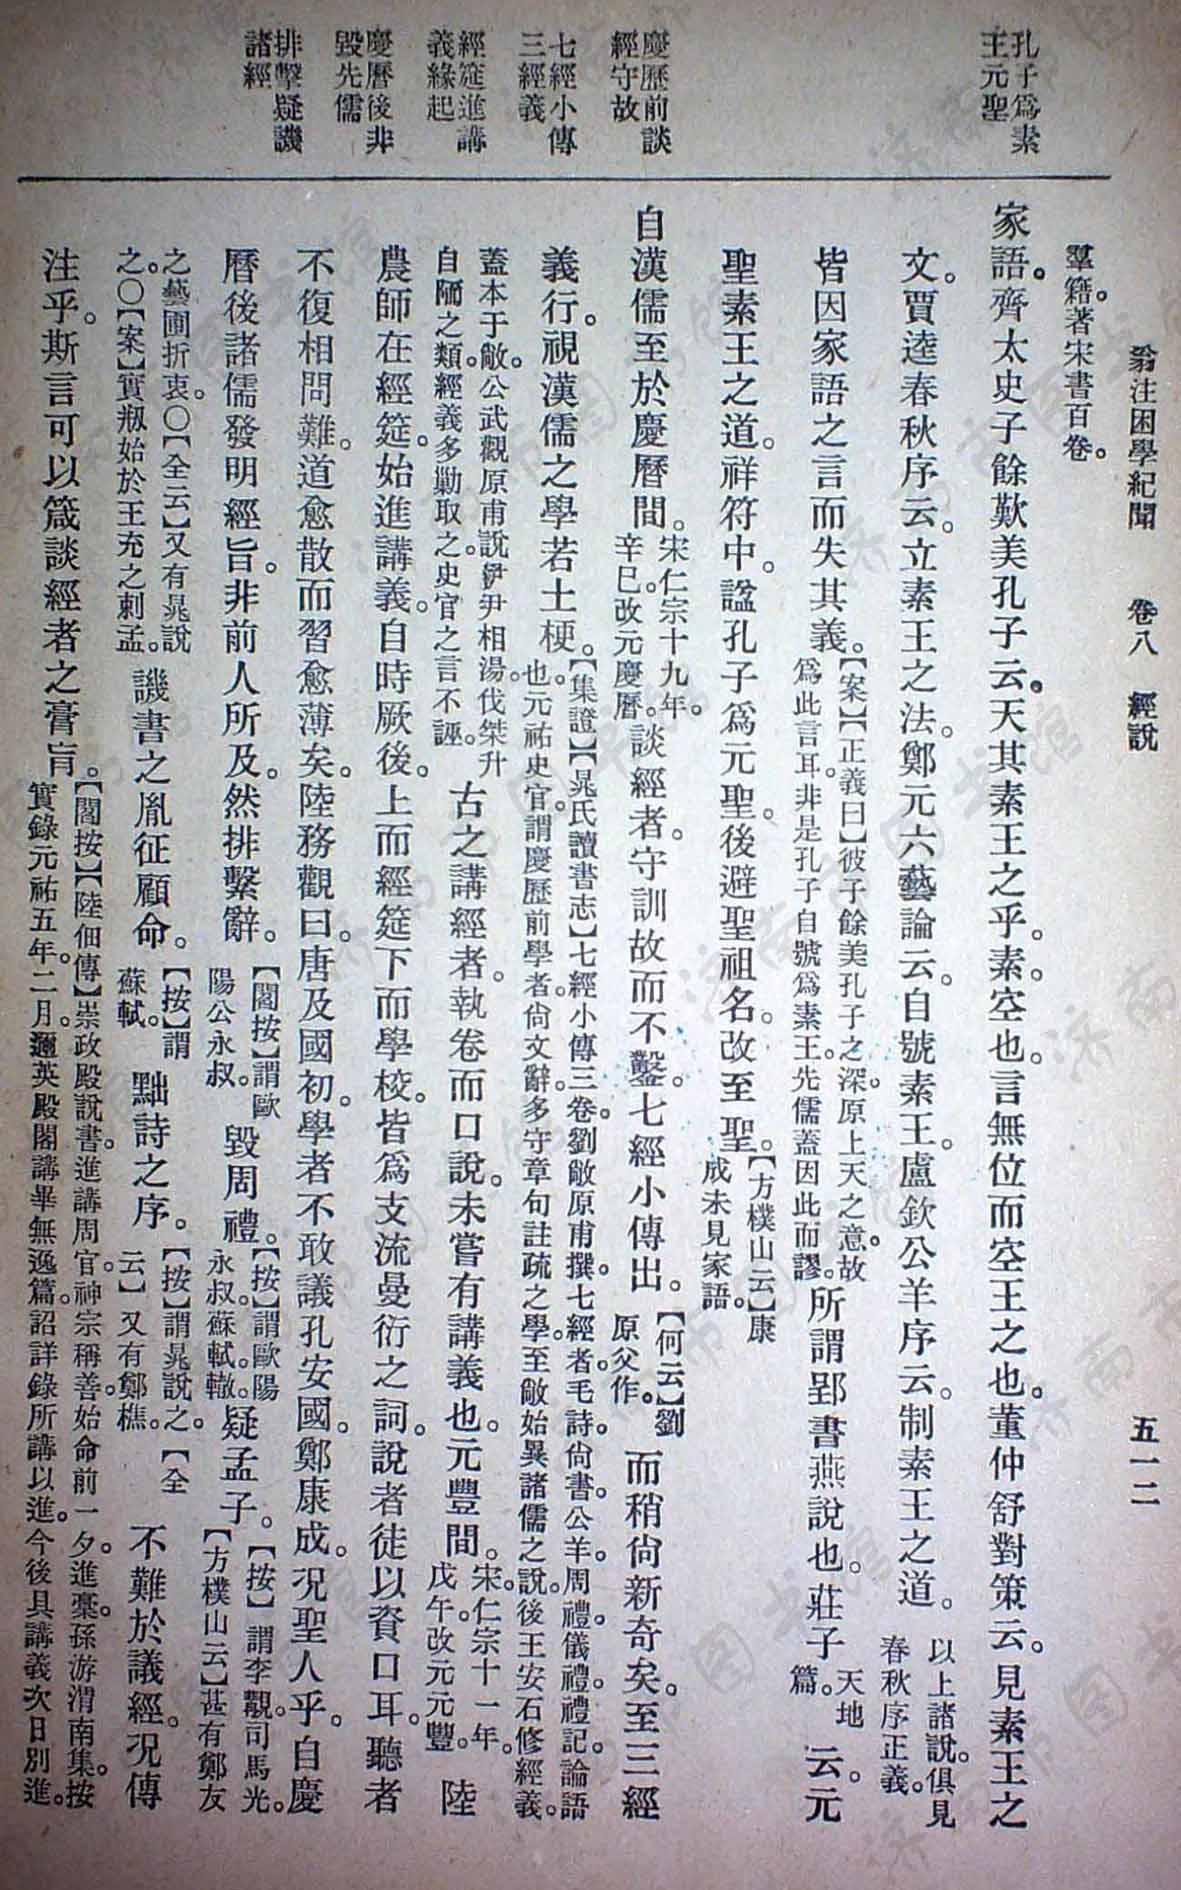 翁注困學紀聞　卷八　經說　五一二
孔子爲素
王元聖
慶歷前談
經守故
七經小傳
三經義
經筵進講
義緣起
慶曆後非
毀先儒
排擊疑譏
諸經
羣籍。著宋書百卷。
家語。齊太史子餘歎美孔子云。天其素王之乎。素。空也。言無位而空王之也。董仲舒對策云。見素王之
文。賈逵春秋序云。立素王之法。鄭元六藝論云。自號素王。盧欽公羊序云。制素王之道。
以上諸說。俱見
春秋序正義。
皆因家語之言而失其義。
【案】【正義曰】彼子餘美孔子之深。原上天之意。故
爲此言耳。非是孔子自號爲素王。先儒蓋因此而謬。
所謂郢書燕說也。莊子
天地
篇。
云。元
聖素王之道。祥符中。諡孔子爲元聖。後避聖祖名。改至聖。
【方樸山云】康
成未見家語。
自漢儒至於慶曆間。
宋仁宗十九年。
辛巳。改元慶曆。
談經者。守訓故而不鑿。七經小傳出。
【何云】劉
原父作。
而稍尙新奇矣。至三經
義行。視漢儒之學若土梗。
【集證】【晁氏讀書志】七經小傳三卷。劉敞原甫撰。七經者。毛詩。尙書。公羊。周禮。儀禮。禮記。論語
也。元祐史官。謂慶歷前學者。尙文辭。多守章句註疏之學。至敞始異諸儒之說。後王安石修經義。
蓋本于敞。公武觀原甫說伊尹相湯。伐桀升
自陑之類。經義多勦取之。史官之言不誣。
古之講經者。執卷而口說。未嘗有講義也。元豐間。
宋仁宗十一年。
戊午。改元元豐。
陸
農師在經筵。始進講義。自時厥後。上而經筵下而學校。皆爲支流曼衍之詞。說者徒以資口耳。聽者
不復相問難。道愈散而習愈薄矣。陸務觀曰。唐及國初。學者不敢議孔安國。鄭康成。况聖人乎。自慶
曆後諸儒發明經旨。非前人所及。然排繫辭。
【閻按】謂歐
陽公永叔。
毀周禮。
【按】謂歐陽
永叔。蘇軾。轍。
疑孟子。
【按】謂李覯。司馬光。
【方樸山云】甚有鄭友
之藝圃折衷。〇【全云】又有晁說
之。〇【案】實瓶始於王充之刺孟。
譏書之胤征顧命。
【按】謂
蘇軾。
黜詩之序。
【按】謂晁說之。【全
云】又有鄭樵。
不難於議經。况傳
注乎。斯言可以箴談經者之膏肓。
【閻按】【陸佃傳】崇政殿說書。進講周官。神宗稱善。始命前一夕。進稾。孫游渭南集。按
實錄。元祐五年。二月。邇英殿閣講畢無逸篇。詔詳錄所講以進。今後具講義。次日別進。